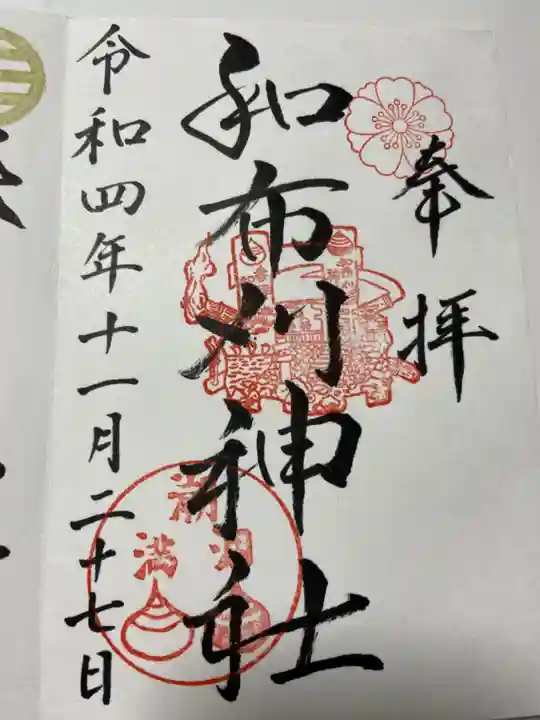 奉拝
和布刈神社
令和四年十一月二十七日
満